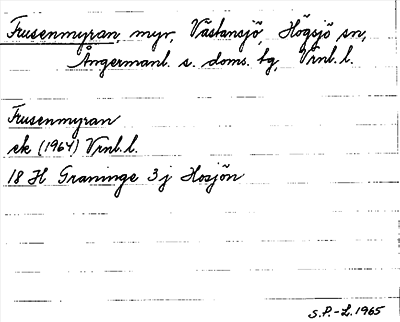 Frusenmyran, myr, Västansjö, Högsjö sn,
Ångermanl. s. doms. tg, Vrnl. l.
Frusenmyran
ek (1964) Vrnl. l.
18 H Graninge 3 j Hosjön
S.P.-L. 1965